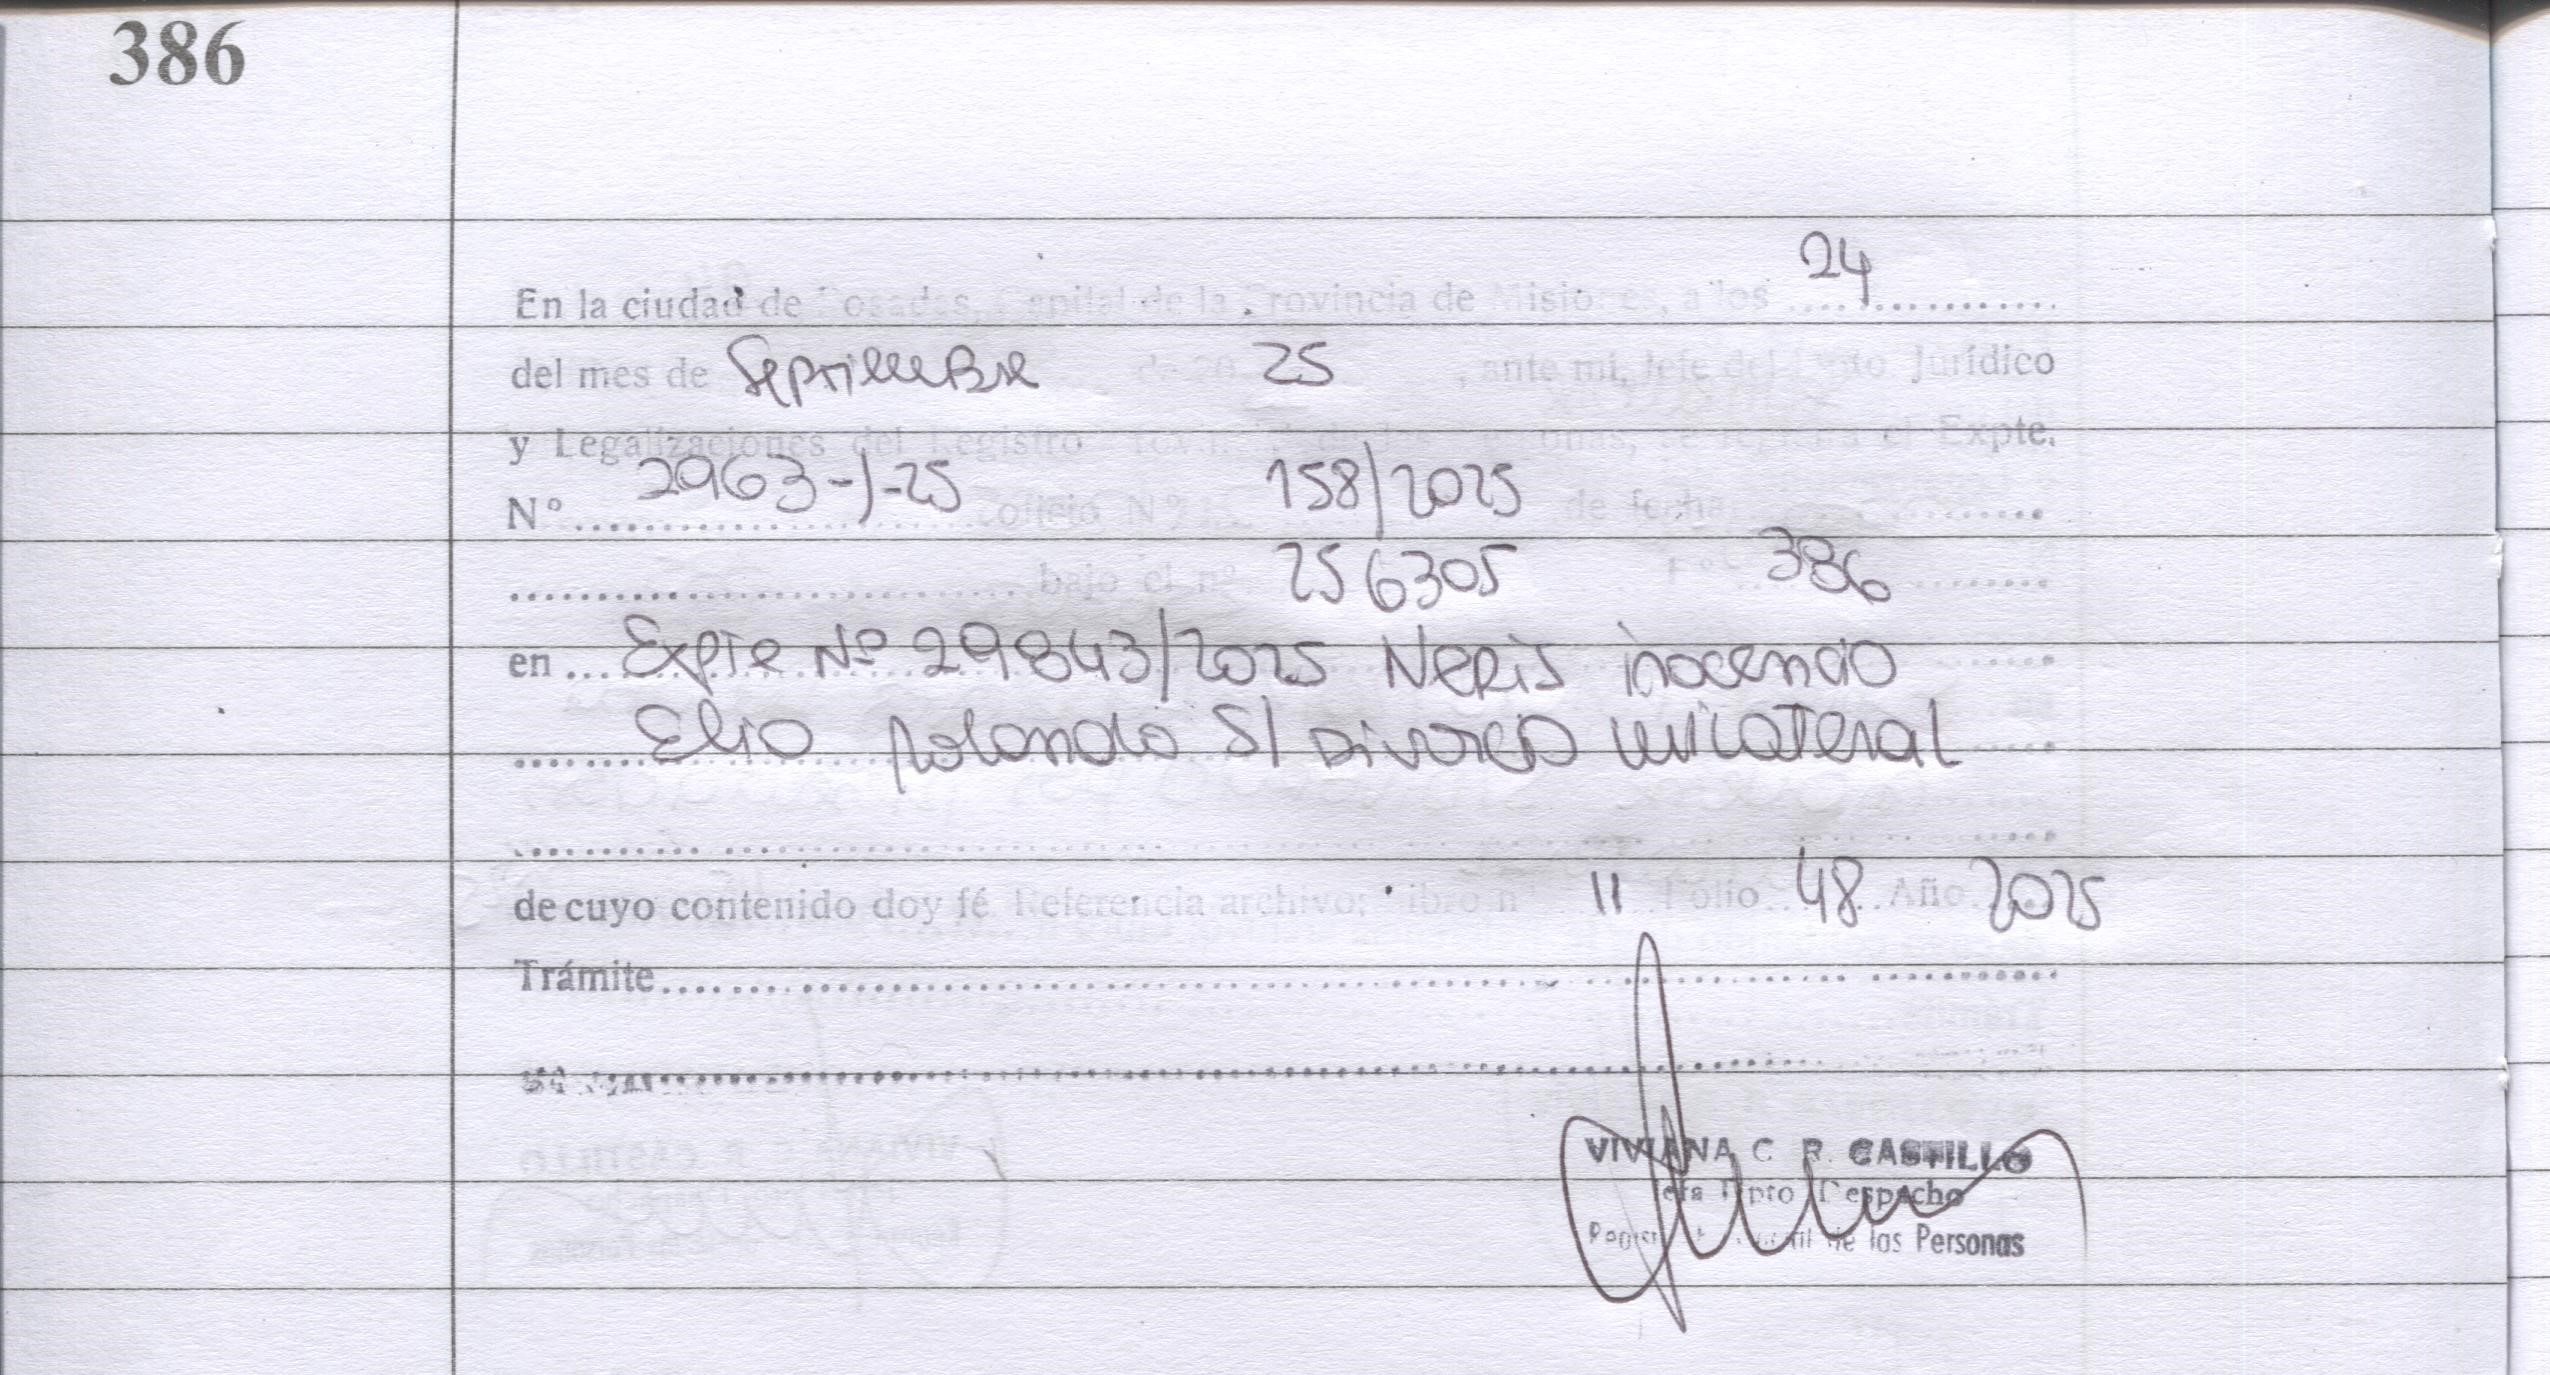 386
En la ciudad de Posadas, Capital de la Provincia de Misiones, a los 24
del mes de Septiembre de 20 25, ante mi, Jefe del Dpto. Jurídico
y Legalizaciones del Registro Provincial de las Personas, se registra el Expte.
Nº 2963-/-25 oficio Nº 158/2025 de fecha
bajo el nº 256305 Fº 386
en Expte Nº 29843/2025 Neris inocencio
Elio Rolando S/ Divorcio unilateral
de cuyo contenido doy fé. Referencia archivo: Libro nº 11 Folio 48 Año 2025
Trámite
VIVIANA C. R. CASTILLO
Jefa Dpto Despacho
de las Personas